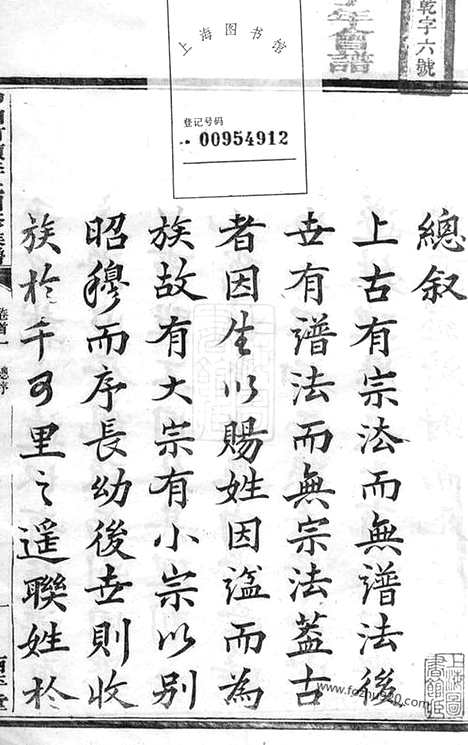 總叙
上古有宗法而無譜法後
世有譜法而無宗法葢古
者因生以賜姓因謚而為
族故有大宗有小宗以别
昭穆而序長幼後世則收
族於千百里之遥聯姓於
卷首一
總序
一
上海图书馆
登记号码
00954912
年會譜
乾字六號
www.fozhu920.com